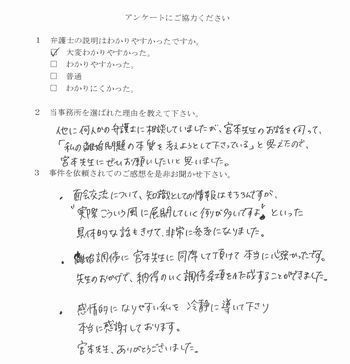 アンケートにご協力ください
1 弁護士の説明はわかりやすかったですか。
☑ 大変わかりやすかった。
□ わかりやすかった。
□ 普通
□ わかりにくかった。
2 当事務所を選ばれた理由を教えて下さい。
他に何人かの弁護士に相談していましたが、宮本先生のお話を伺って、
「私の離婚問題の本質を考えようとして下さっている」と思えたので、
宮本先生にぜひお願いしたいと思いました。
3 事件を依頼されてのご感想を是非お聞かせ下さい。
・面会交流について、知識としての情報はもちろんですが、
"実際こういう風に展開していく例が多いですよ"といった
具体的な話もきけて、非常に参考になりました。
・離婚調停に宮本先生に同席して頂けて本当に心強かったです。
先生のおかげで、納得のいく調停条項を作成することができました。
・感情的になりやすい私を冷静に導いて下さり
本当に感謝しております。
宮本先生、ありがとうございました。